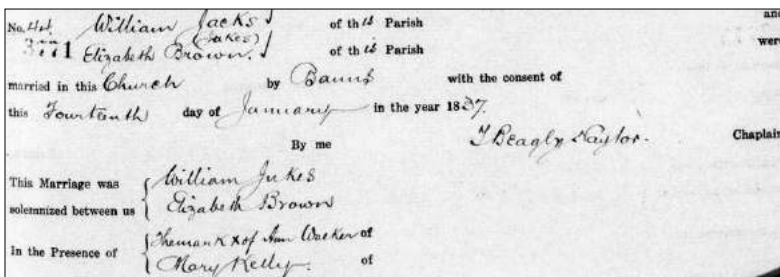 No. 44 William Jacks of this Parish and
(Jukes)
3771 Elizabeth Brown. of this Parish were
married in this Church by Banns with the consent of
this Fourteenth day of January in the year 1837.
By me T Beagly Naylor. Chaplain
This Marriage was William Jukes
solemnized between us Elizabeth Brown
In the Presence of The mark X of Ann Walker of
Mary Kelly. of